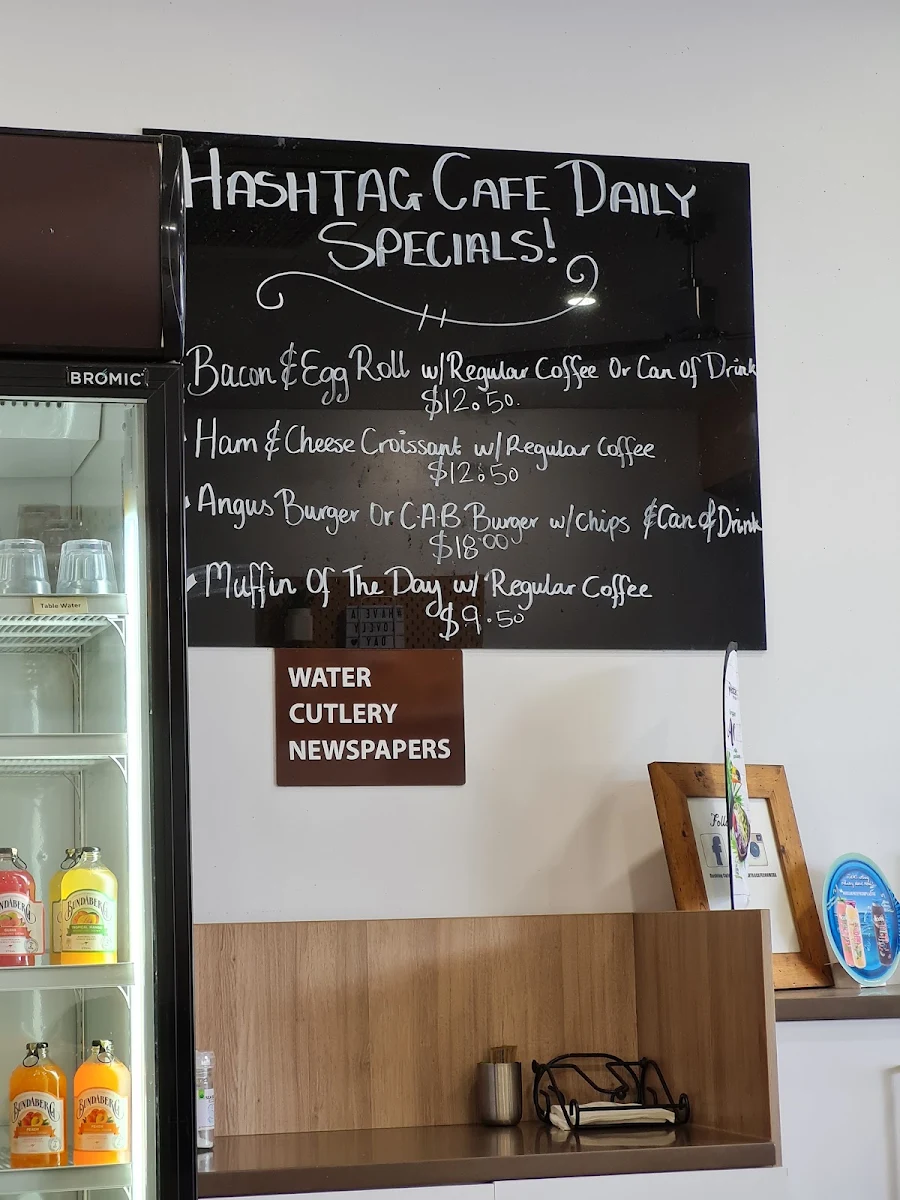 HASHTAG CAFE DAILY
SPECIALS!
Bacon & Egg Roll w/Regular Coffee Or Can Of Drink
$12.50.
Ham & Cheese Croissant w/Regular Coffee
$12.50
Angus Burger Or C.A.B Burger w/Chips & Can of Drink
$18.00
Muffin Of The Day w/ Regular Coffee
$9.50
BROMIC
Table Water
WATER
CUTLERY
NEWSPAPERS
HAVE A
LOVELY
DAY
BUNDABERG
BUNDABERG
BUNDABERG
BUNDABERG